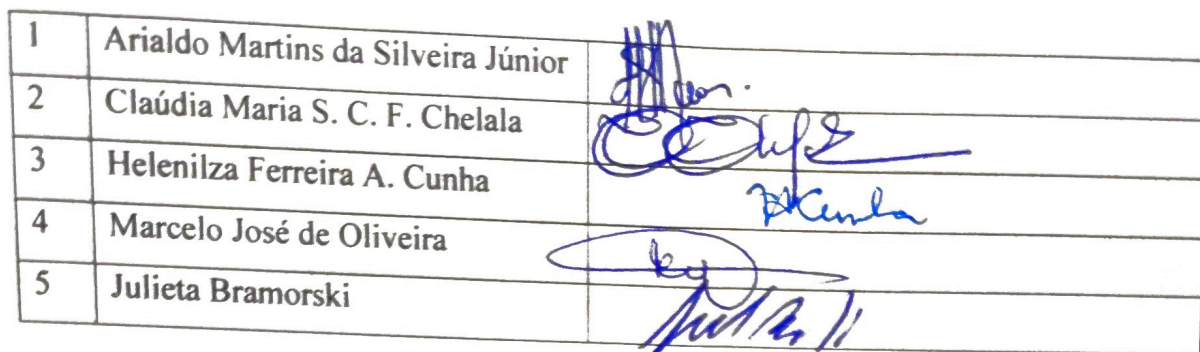 1 Arialdo Martins da Silveira Júnior
2 Claúdia Maria S. C. F. Chelala
3 Helenilza Ferreira A. Cunha
4 Marcelo José de Oliveira
5 Julieta Bramorski